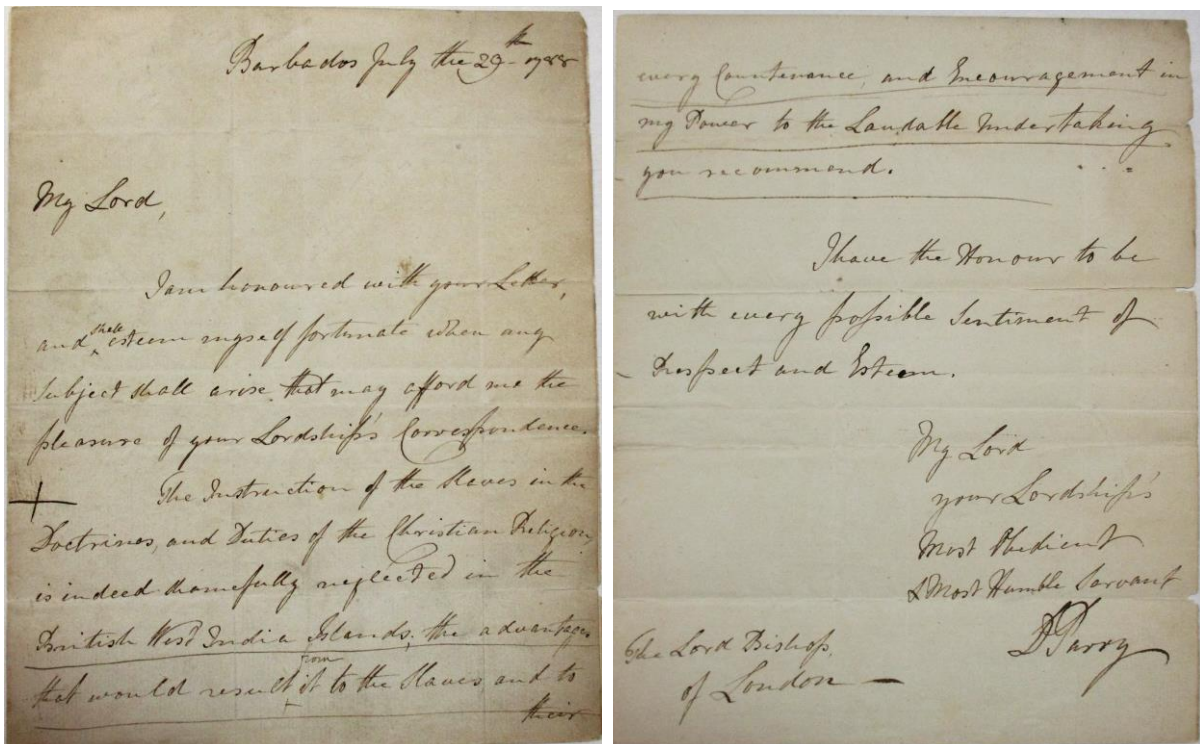 Barbados July the 29th 1788
My Lord,
I am honoured with your Letter,
and shall esteem myself fortunate when any
Subject shall arise that may afford me the
pleasure of your Lordship's Correspondence.
The Instruction of the Slaves in the
Doctrines, and Duties of the Christian Religion,
is indeed shamefully neglected in the
British West India Islands; the advantages
that would result from it to the Slaves and to
their
every Countenance, and Encouragement in
my Power to the Laudable Undertaking
you recommend.
I have the Honour to be
with every possible Sentiment of
Respect and Esteem.
My Lord
your Lordship's
Most Obedient
& Most Humble Servant
D Parry
The Lord Bishop,
of London